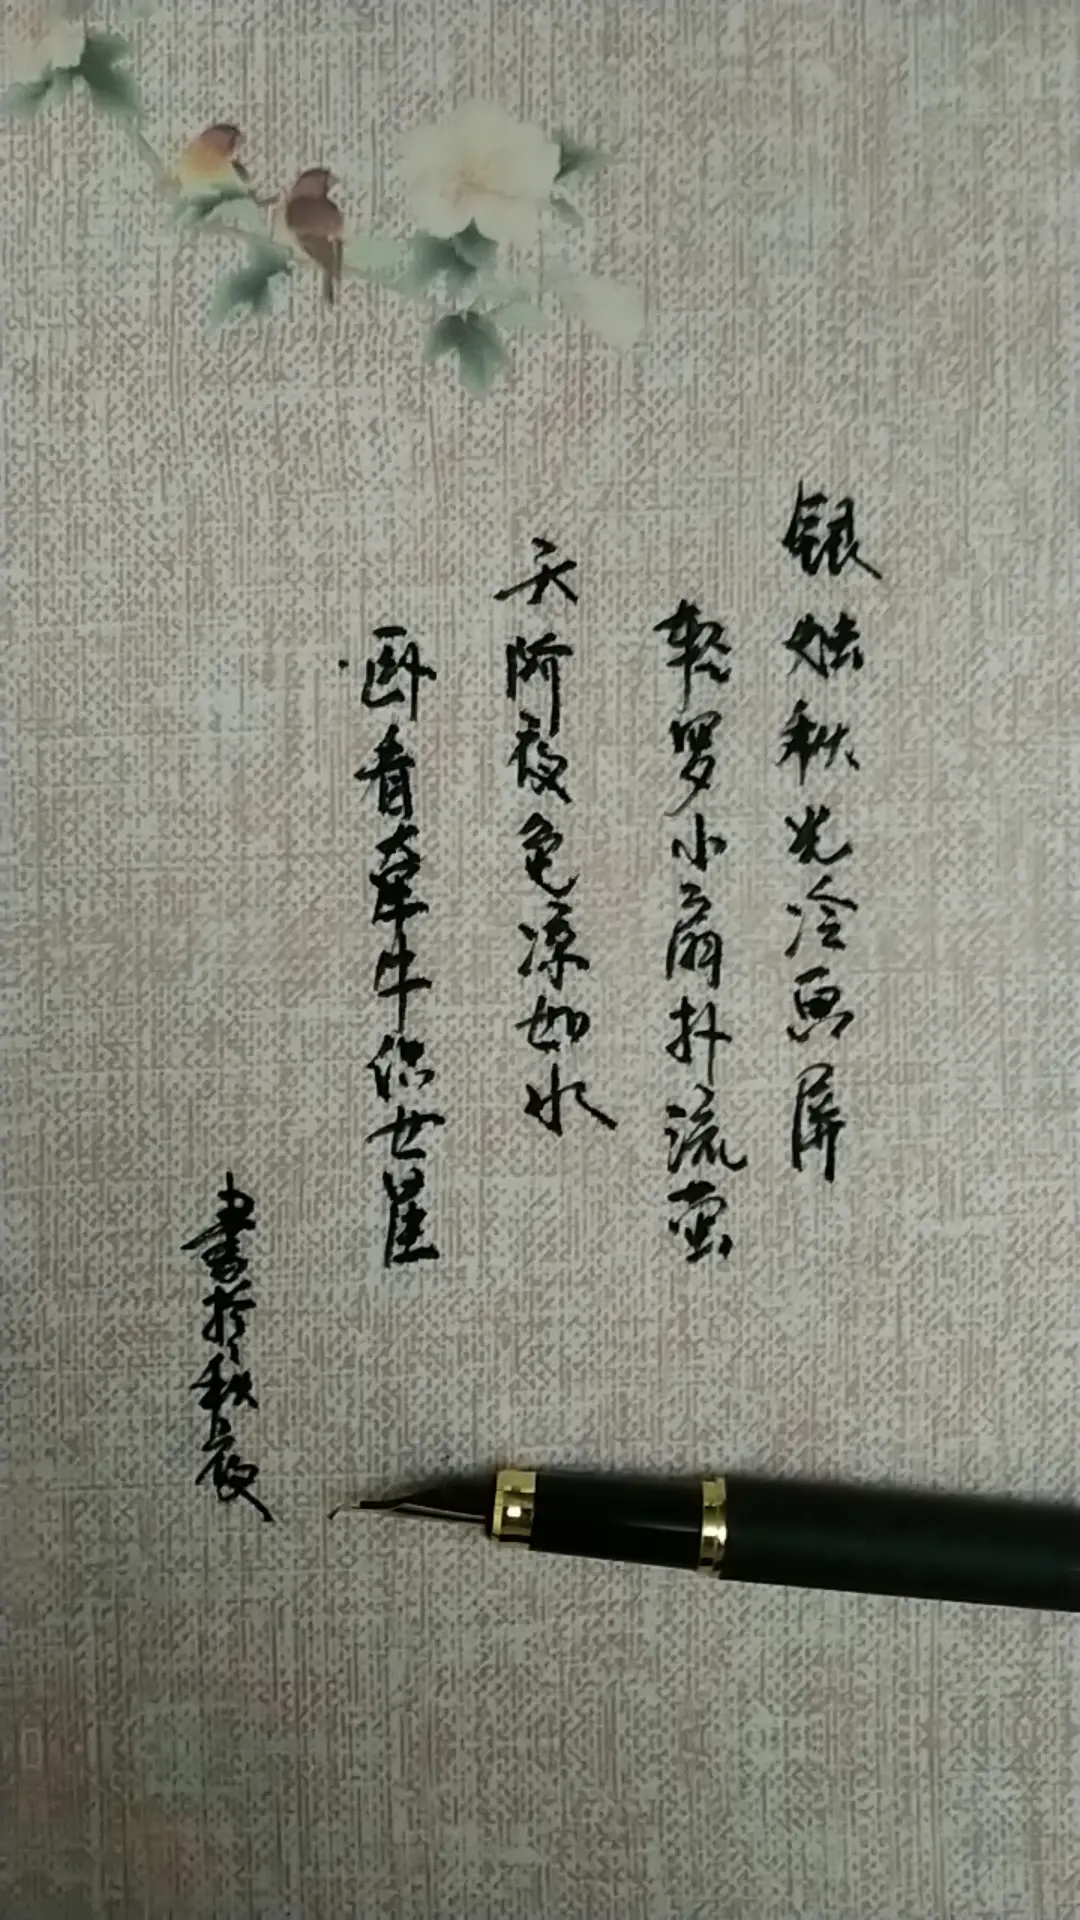 银烛秋光冷画屏
轻罗小扇扑流萤
天阶夜色凉如水
卧看牵牛织女星
書於秋夜